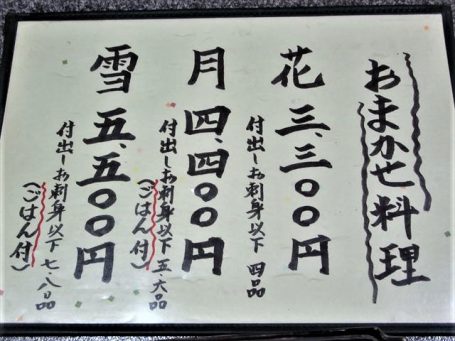 おまかせ料理
花 三、三〇〇円
付出しお刺身以下 四品
月 四、四〇〇円
付出しお刺身以下 五、六品
(ごはん付)
雪 五、五〇〇円
付出しお刺身以下 七、八品
(ごはん付)